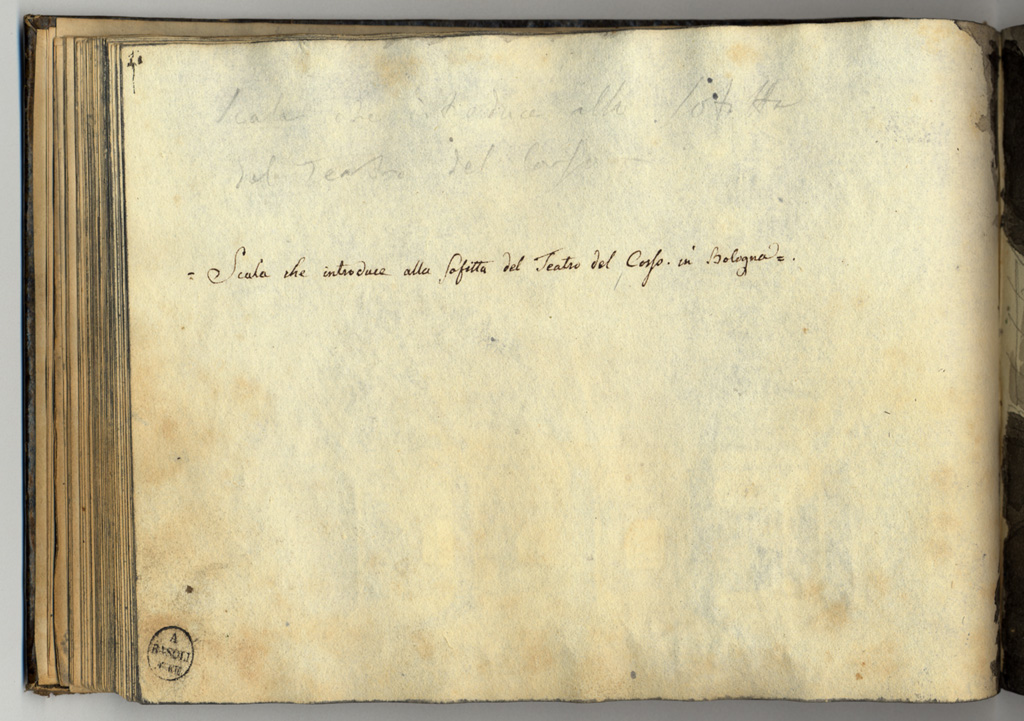 Scala che introduce alla Sofitta
del Teatro del Corso -
= Scala che introduce alla Sofitta del Teatro del Corso. in Bologna =.
A
BASOLI